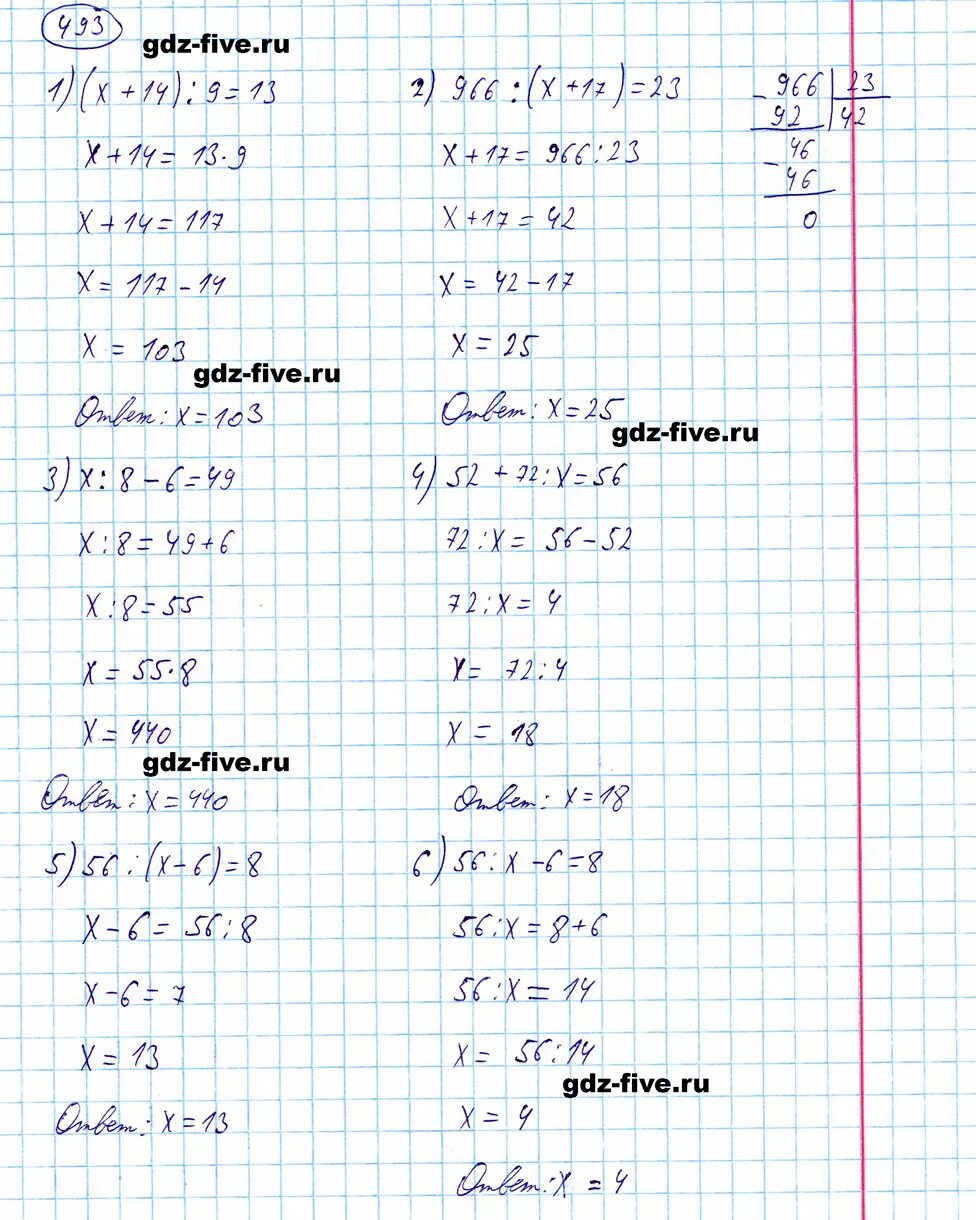 493
gdz-five.ru
1) (x + 14) : 9 = 13
x + 14 = 13 · 9
x + 14 = 117
x = 117 - 14
x = 103
gdz-five.ru
Ответ: x = 103
2) 966 : (x + 17) = 23
x + 17 = 966 : 23
x + 17 = 42
x = 42 - 17
x = 25
Ответ: x = 25
gdz-five.ru
- 966 | 23
92 | 42
- 46
46
0
3) x : 8 - 6 = 49
x : 8 = 49 + 6
x : 8 = 55
x = 55 · 8
x = 440
gdz-five.ru
Ответ: x = 440
4) 52 + 72 : x = 56
72 : x = 56 - 52
72 : x = 4
x = 72 : 4
x = 18
Ответ: x = 18
5) 56 : (x - 6) = 8
x - 6 = 56 : 8
x - 6 = 7
x = 13
Ответ: x = 13
6) 56 : x - 6 = 8
56 : x = 8 + 6
56 : x = 14
x = 56 : 14
gdz-five.ru
x = 4
Ответ: x = 4